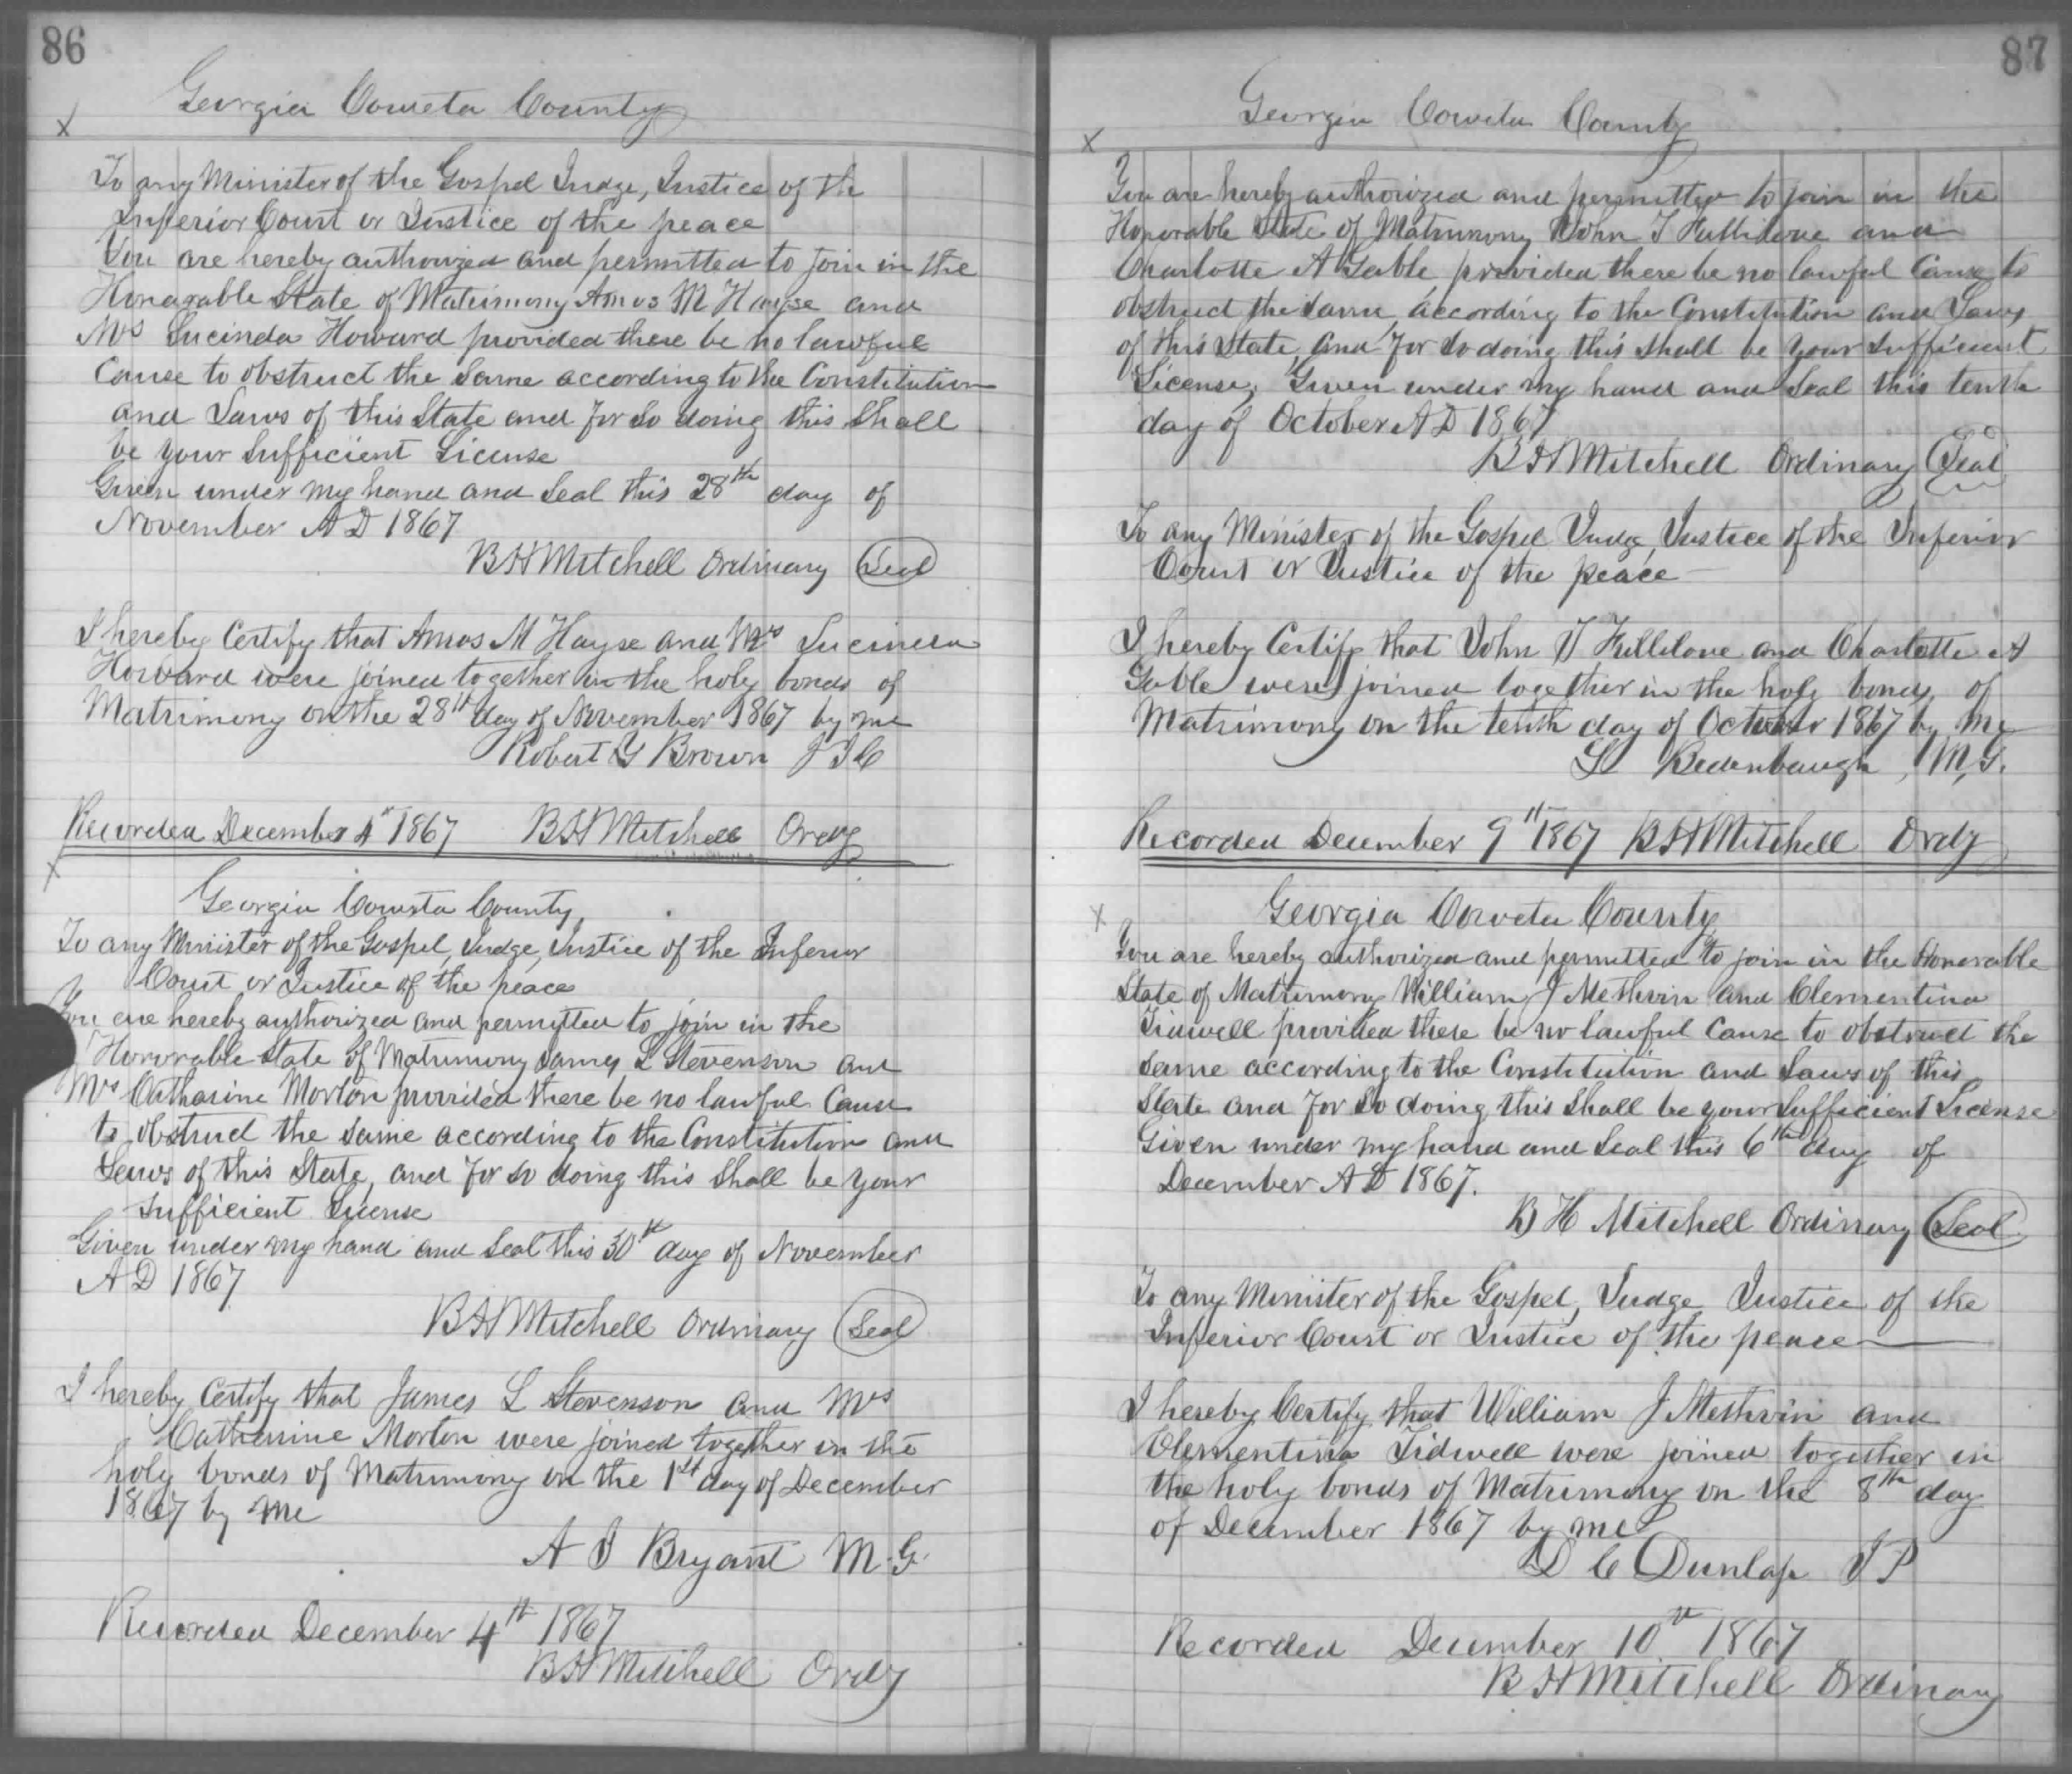 86
Georgia Coweta County
x
To any Minister of the Gospel Judge, Justice of the
Inferior Court or Justice of the peace
You are hereby authorized and permitted to join in the
Honarable State of Matrimony Amos M Hayse and
Mrs Lucinda Howard provided there be no lawful
Cause to obstruct the Same according to the Constitution
and Laws of this State and for So doing this Shall
be your Sufficient License
Given under my hand and Seal this 28th day of
November A D 1867
B H Mitchell Ordinary Seal
I hereby Certify that Amos M Hayse and Mrs Lucinda
Howard were joined together in the holy bonds of
Matrimony on the 28th day of November 1867 by me
Robert Y Brown J I C
Recorded December 4th 1867 B H Mitchell Ordy
x
Georgia Coweta County,
To any Minister of the Gospel, Judge, Justice of the Inferior
Court or Justice of the peace
You are hereby authorized and permitted to join in the
Honorable State of Matrimony James L Stevenson and
Mrs Catharine Morton provided there be no lawful Cause
to obstruct the same according to the Constitution and
Laws of this State, and for so doing this Shall be your
Sufficient License
Given under my hand and Seal this 30th day of November
A D 1867
B H Mitchell Ordinary Seal
I hereby Certify that James L Stevenson and Mrs
Catherine Morton were joined together in the
holy bonds of Matrimony on the 1st day of December
1867 by me
A J Bryant M. G.
Recorded December 4th 1867
B H Mitchell Ordy
87
Georgia Coweta County
x
You are hereby authorized and permitted to join in the
Honorable State of Matrimony John T Fullilove and
Charlotte A Gable, provided there be no lawful Cause to
obstruct the Same, according to the Constitution and Laws
of this State, and for So doing this Shall be your Sufficient
License, Given under my hand and Seal this tenth
day of October A D 1867
B H Mitchell Ordinary Seal
To any Minister of the Gospel Judge, Justice of the Inferior
Court or Justice of the peace
I hereby Certify that John T Fullilove and Charlotte A
Gable were joined together in the holy bonds of
Matrimony on the tenth day of October 1867 by me
L Bedenbaugh, M, G.
Recorded December 9th 1867 B H Mitchell Ordy
x
Georgia Coweta County
You are hereby authorized and permitted to join in the Honorable
State of Matrimony William J Methvin and Clementina
Tidwell provided there be no lawful Cause to obstruct the
same according to the Constitution and Laws of this
State and for So doing this Shall be your Sufficient License
Given under my hand and Seal this 6th day of
December A D 1867.
B H Mitchell Ordinary Seal
To any Minister of the Gospel, Judge, Justice of the
Inferior Court or Justice of the peace
I hereby Certify that William J Methvin and
Clementina Tidwell were joined together in
the holy bonds of Matrimony on the 8th day
of December 1867 by me
D C Dunlap J P
Recorded December 10th 1867
B H Mitchell Ordinary